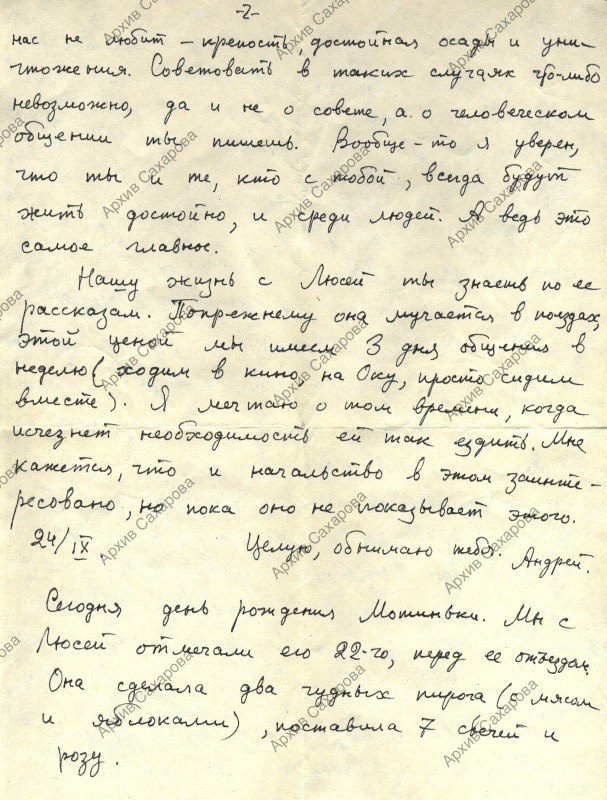 -2-
нас не любит – крепость, достойная осады и уни-
чтожения. Советовать в таких случаях что-либо
невозможно, да и не о совете, а о человеческом
общении ты пишешь. Вообще-то я уверен,
что ты и те, кто с тобой, всегда будут
жить достойно, и среди людей. А ведь это
самое главное.
Нашу жизнь с Люсей ты знаешь по ее
рассказам. Попрежнему она мучается в поездах,
этой ценой мы имеем 3 дня общения в
неделю (ходим в кино, на Оку, просто сидим
вместе). Я мечтаю о том времени, когда
исчезнет необходимость ей так ездить. Мне
кажется, что и начальство в этом заинте-
ресовано, но пока оно не показывает этого.
24/IX Целую, обнимаю тебя. Андрей.
Сегодня день рождения Мотиньки. Мы с
Люсей отмечали его 22-го, перед ее отъездом.
Она сделала два чудных пирога (с мясом
и яблоками), поставила 7 свечей и
розу.
Архив Сахарова